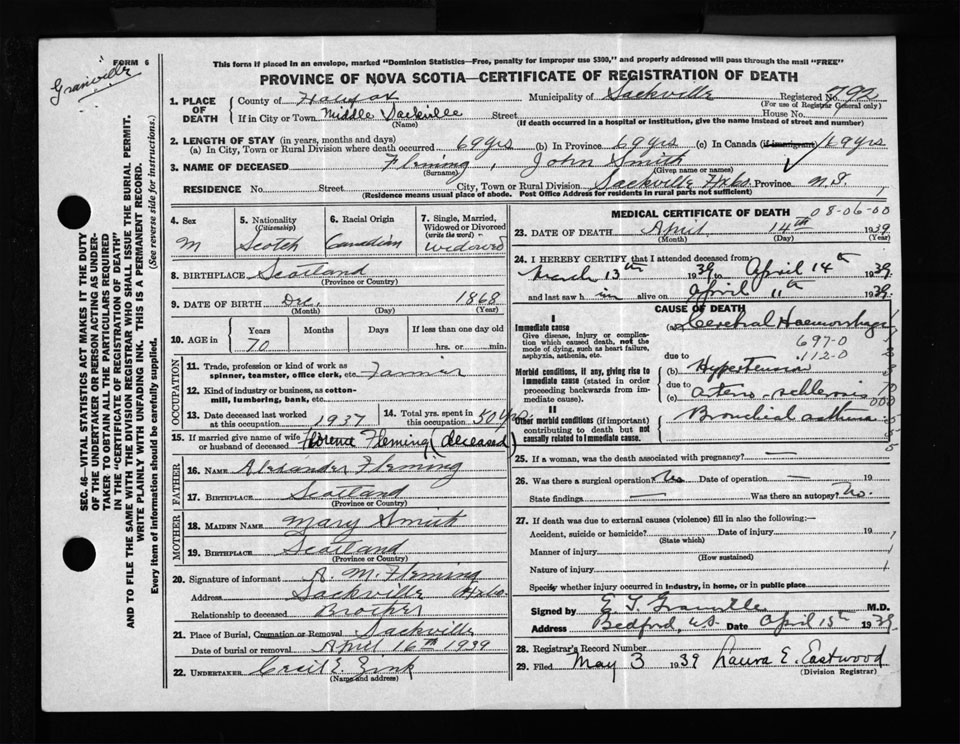 Granville
FORM 6
This form if placed in an envelope, marked "Dominion Statistics—Free, penalty for improper use $300," and properly addressed will pass through the mail "FREE"
PROVINCE OF NOVA SCOTIA—CERTIFICATE OF REGISTRATION OF DEATH
1. PLACE OF DEATH
County of Halifax Municipality of Sackville Registered No. 792
(For use of Registrar General only)
If in City or Town Middle Sackville Street House No.
(Name) (If death occurred in a hospital or institution, give the name instead of street and number)
2. LENGTH OF STAY (in years, months and days)
(a) In City, Town or Rural Division where death occurred 69 yrs (b) In Province 69 yrs (c) In Canada (if immigrant) 69 yrs
3. NAME OF DECEASED Fleming, John Smith
(Surname) (Given name or names)
RESIDENCE No. Street City, Town or Rural Division Sackville Hfx Co. Province N.S.
(Residence means usual place of abode. Post Office Address for residents in rural parts not sufficient)
4. Sex
M
5. Nationality
(Citizenship)
Scotch
6. Racial Origin
Canadian
7. Single, Married, Widowed or Divorced
(write the word)
widowed
8. BIRTHPLACE Scotland
(Province or Country)
9. DATE OF BIRTH Dec, 1868
(Month) (Day) (Year)
10. AGE in Years Months Days If less than one day old
70 hrs. or min.
OCCUPATION
11. Trade, profession or kind of work as
spinner, teamster, office clerk, etc. Farmer
12. Kind of industry or business, as cotton-
mill, lumbering, bank, etc.
13. Date deceased last worked
at this occupation 1937
14. Total yrs. spent in
this occupation 50 yrs
15. If married give name of wife
or husband of deceased Florence Fleming (deceased)
FATHER
16. NAME Alexander Fleming
17. BIRTHPLACE Scotland
(Province or Country)
MOTHER
18. MAIDEN NAME Mary Smith
19. BIRTHPLACE Scotland
(Province or Country)
20. Signature of informant A. M. Fleming
Address Sackville Hfx Co.
Relationship to deceased Brother
21. Place of Burial, Cremation or Removal Sackville
Date of burial or removal April 16th 1939
22. UNDERTAKER Cecil E. Zink
(Name and address)
MEDICAL CERTIFICATE OF DEATH
08-06-00
23. DATE OF DEATH April 14th 1939
(Month) (Day) (Year)
24. I HEREBY CERTIFY that I attended deceased from
March 13th 1939 to April 14th 1939
and last saw h im alive on April 11th 1939.
CAUSE OF DEATH
I
Immediate cause
Give disease, injury or complication which caused death, not the mode of dying, such as heart failure, asphyxia, asthenia, etc.
(a) Cerebral Haemorrhage
697-0
112-0
due to
Morbid conditions, if any, giving rise to immediate cause (stated in order proceeding backwards from immediate cause).
(b) Hypertension
due to
(c) arterio-schlerosis
II
Other morbid conditions (if important) contributing to death but not causally related to immediate cause.
Bronchial asthma
25. If a woman, was the death associated with pregnancy? —
26. Was there a surgical operation No Date of operation — 19
State findings — Was there an autopsy? No.
27. If death was due to external causes (violence) fill in also the following:—
Accident, suicide or homicide? Date of injury 19
(State which)
Manner of injury
(How sustained)
Nature of injury
Specify whether injury occurred in industry, in home, or in public place
Signed by M.D.
Address Bedford, N.S. Date April 15th 1939
28. Registrar's Record Number
29. Filed May 3 1939 Laura E. Eastwood
(Division Registrar)
SEC. 46—VITAL STATISTICS ACT MAKES IT THE DUTY
OF THE UNDERTAKER OR PERSON ACTING AS UNDER-
TAKER TO OBTAIN ALL THE PARTICULARS REQUIRED
IN THE "CERTIFICATE OF REGISTRATION OF DEATH"
AND TO FILE THE SAME WITH THE DIVISION REGISTRAR WHO SHALL ISSUE THE BURIAL PERMIT.
WRITE PLAINLY WITH UNFADING INK. THIS IS A PERMANENT RECORD.
Every item of information should be carefully supplied. (See reverse side for instructions.)